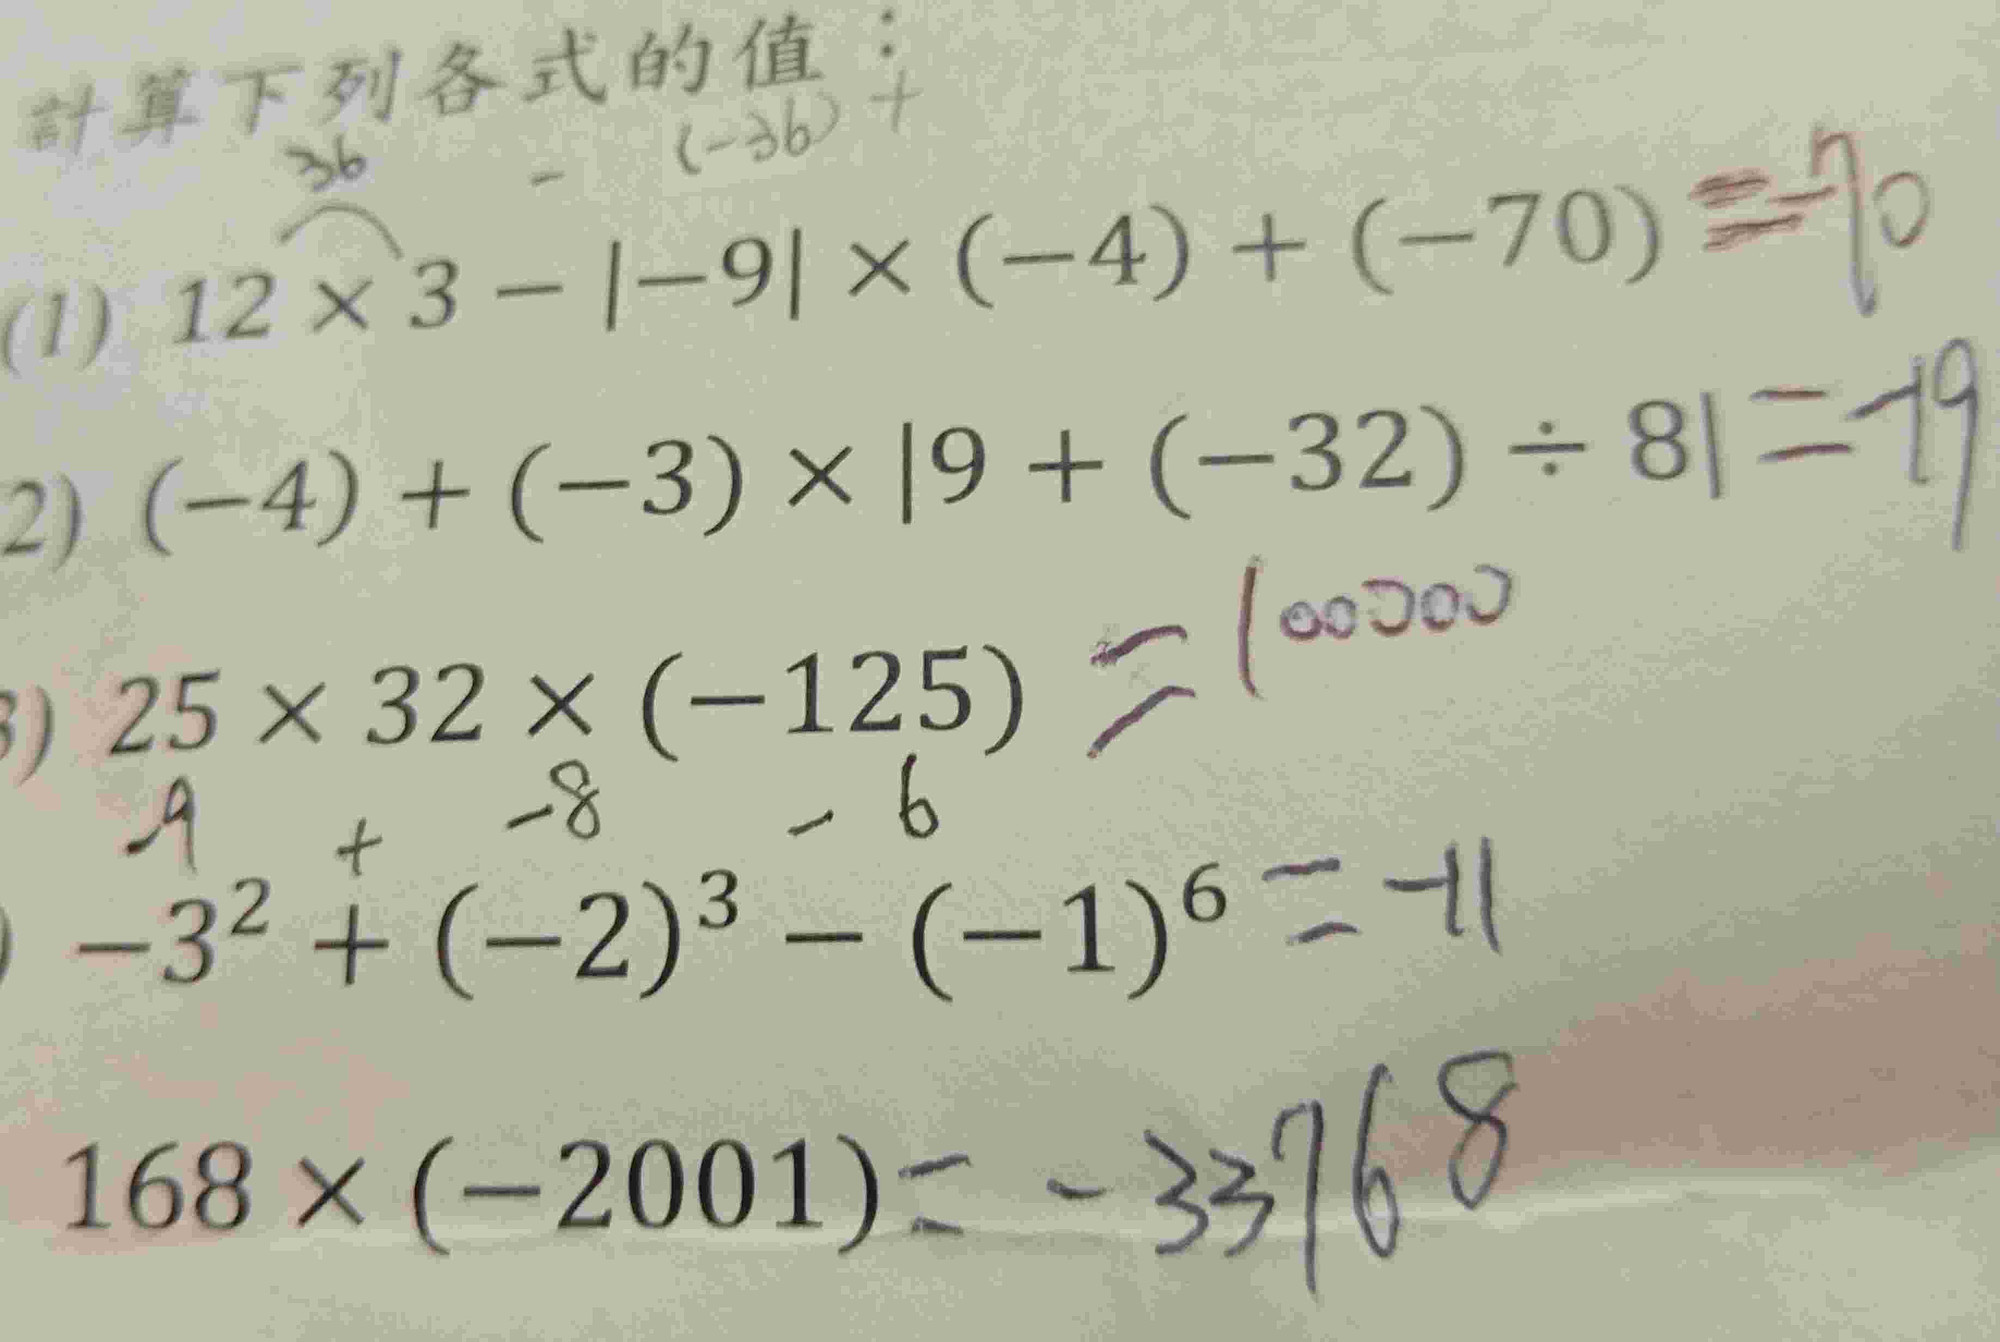 計算下列各式的值：
36 - (-36) +
(1) 12 × 3 − |−9| × (−4) + (−70) = -70
2) (−4) + (−3) × |9 + (−32) ÷ 8| = -19
3) 25 × 32 × (−125) = 100000
-9 + -8 - 6
) −3² + (−2)³ − (−1)⁶ = -11
168 × (−2001) = -33768